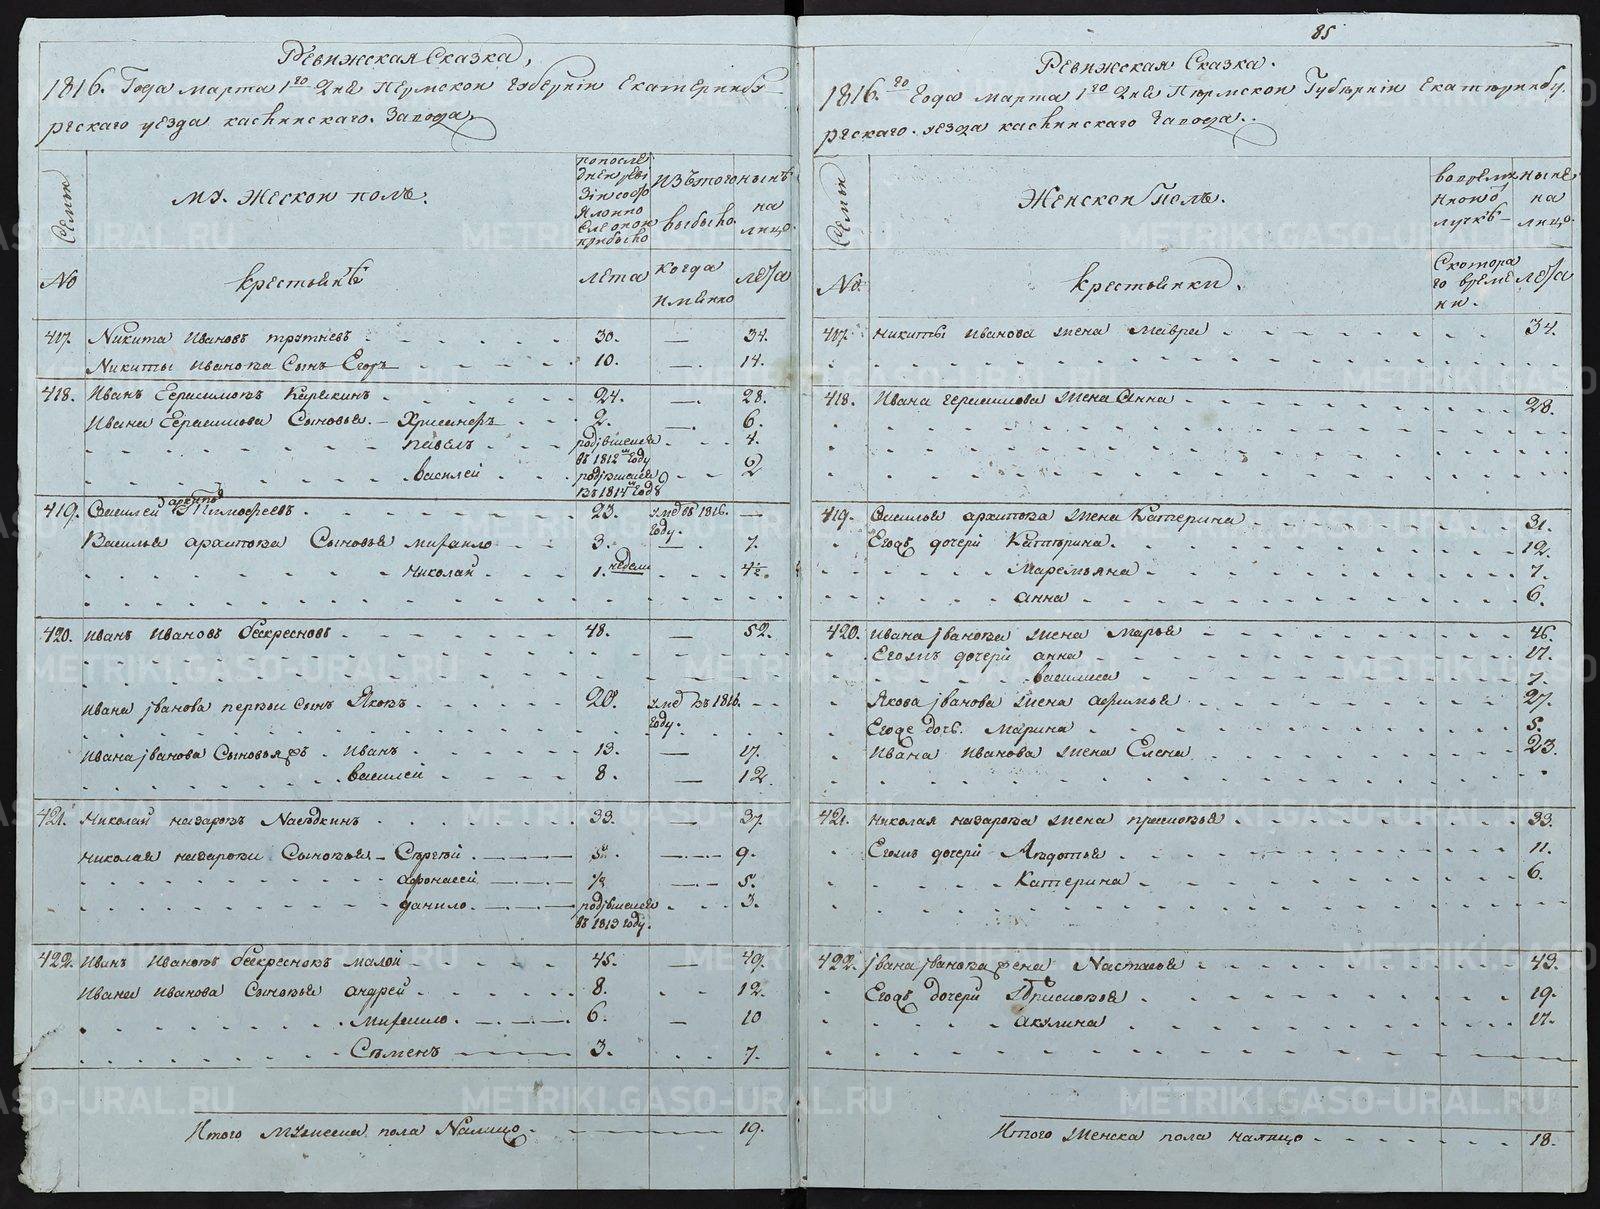 Ревижская Сказка,
1816. Года марта 1го дня Пермской губернiи Екатеринбу
ргскаго уезда каслинскаго Завода,
Семьи
му. жеской полъ.
по после
дней реви
зiи состо
яло и по
сле оной
прибыло
изъ того
выбыло
нынѣ
на
лицо
No
крестьянѣ
лета
когда
имянно
лета
417. Никита Ивановъ третневъ 30. — 34.
Никиты иванова Сынъ Егоръ 10. — 14.
418. Иванъ Герасимовъ Карякинъ 24. — 28.
Ивана Герасимова Сыновья Хрисанфъ 2. — 6.
павелъ родjвшелся 4.
въ 1812м году
василей родjвшелся 2
въ 1814м году
419. Василей архипов Тимофеевъ 23. умре въ 1816. —
году.
Василья архипова Сыновья михаило 3. — 7.
Николай 1. недели 4½
420. иванъ Ивановъ бескресновъ 48. — 52.
ивана jванова первой сынъ Яковъ 20. умре въ 1816.
году.
ивана jванова Сыновья ж. иванъ 13. — 17.
василей 8. — 12.
421. Николай назаровъ Наседкинъ 33. — 37.
николая назарова Сыновья Сергей 5. — 9.
афонасей ½ — 5.
данило родjвшелся 3.
въ 1813 году.
422. Иванъ Ивановъ бескресновъ малой 45. — 49.
Ивана иванова Сыновья андрей 8. 12.
михаило 6. — 10
Семенъ 3. 7.
Итого мужеска пола Налицо 19.
85
Ревижская Сказка.
1816.го Года марта 1го дня Пермской Губернiи Екатеринбу
ргскаго. уезда каслинскаго завода.
Семьи
Женской полъ.
во време
нной от
лучкѣ
ныне
на
лицо
No.
крестьянки.
С котора
го време
ни.
лета
417. никиты иванова жена мавра 34.
418. Ивана герасимова жена Анна 28.
419. Василья архипова жена Катерина 31.
Егожъ дочери Катерина 12.
Маремьяна 7.
анна 6.
420. ивана jванова жена марья 46.
Егожъ дочери анна 17.
василиса 7.
Якова jванова жена афимья 27.
Егоже дочь. Марина 5.
ивана иванова жена Елена 23.
421. Николая назарова жена прасковья 33.
Егожъ дочери Авдотья 11.
Катерина 6.
422. jвана jванова жена Настасья 43.
Егожъ дочери прасковья 19.
акулина 17.
Итого женска пола налицо 18.
METRIKI.GASO-URAL.RU